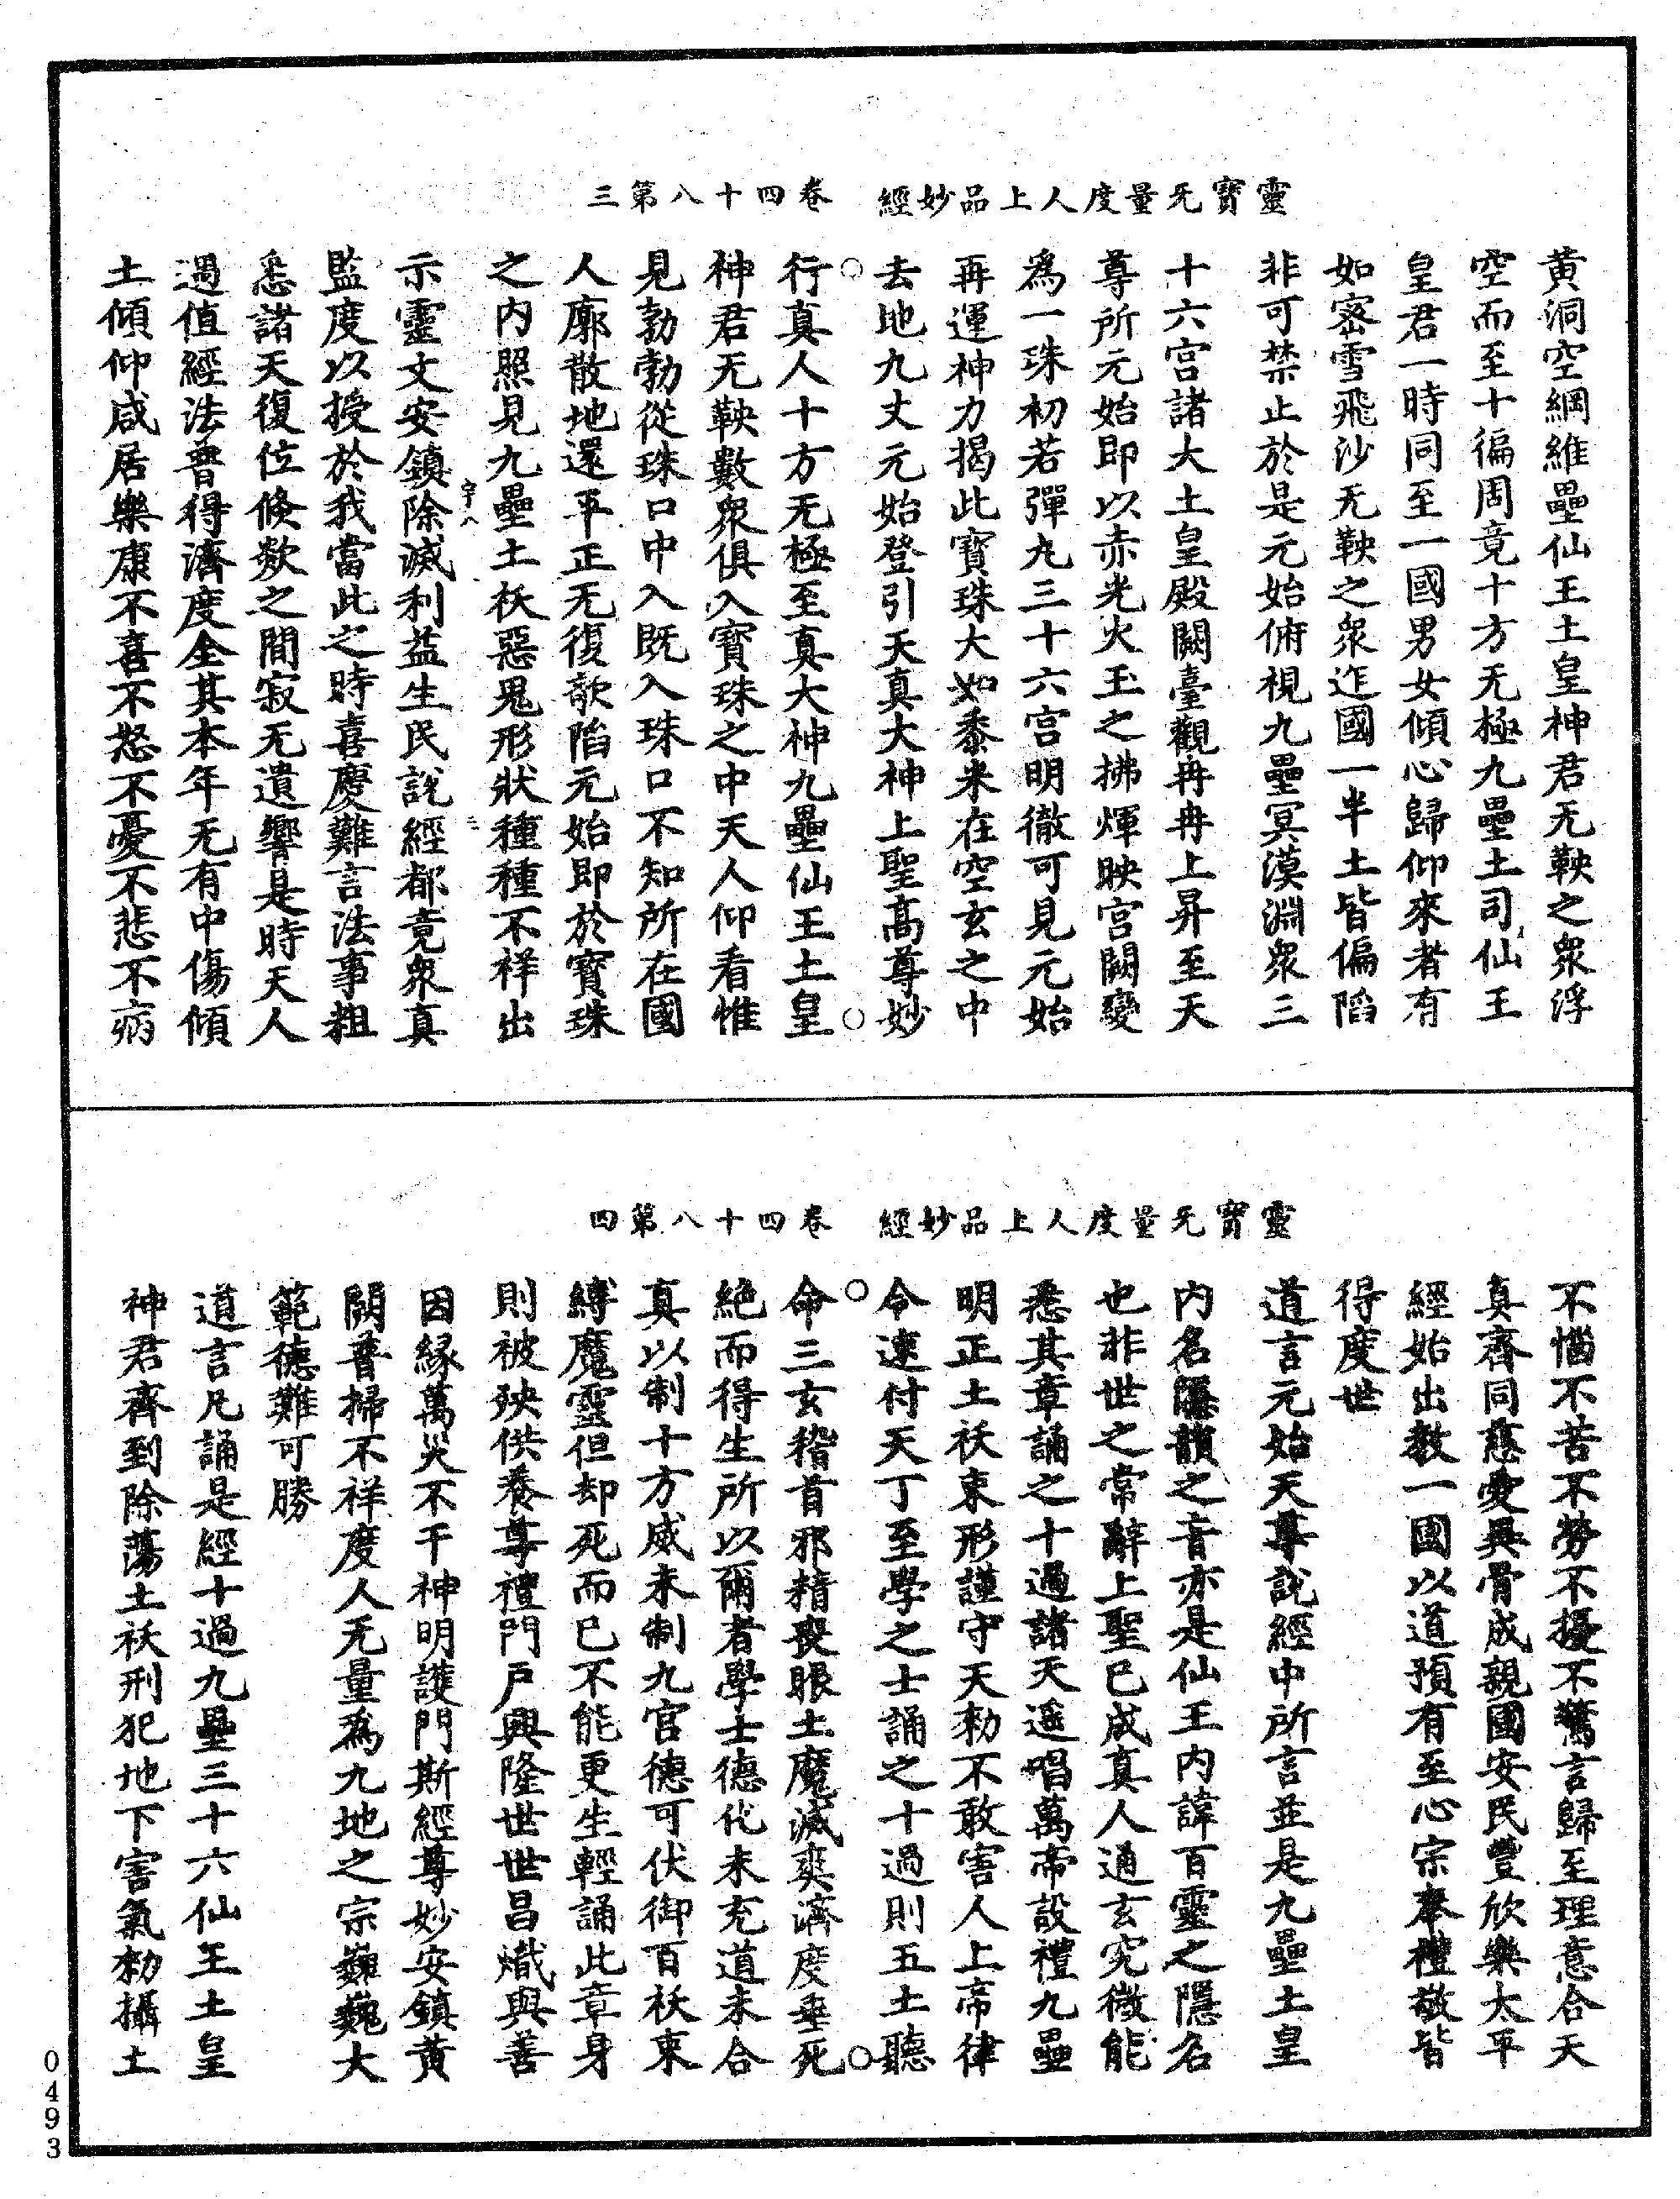 靈寶无量度人上品妙經　卷四十八第三
黃洞空綱維壘仙王土皇神君无鞅之眾浮
空而至十徧周竟十方无極九壘土司仙王
皇君一時同至一國男女傾心歸仰來者有
如密雪飛沙无鞅之眾迮國一半土皆偏陷
非可禁止於是元始俯視九壘冥漠淵眾三
十六宫諸大土皇殿闕臺觀冉冉上昇至天
尊所元始即以赤光火玉之拂煇映宫闕變
為一珠初若彈丸三十六宫明徹可見元始
再運神力揭此寶珠大如黍米在空玄之中
去地九丈元始登引天真大神上聖髙尊妙
行真人十方无極至真大神九壘仙王土皇
神君无鞅數眾俱入寶珠之中天人仰看惟
見勃勃從珠口中入既入珠口不知所在國
人廓散地還平正无復欹陷元始即於寶珠
之内照見九壘土袄惡鬼形狀種種不祥出
示靈文安鎮除滅利益生民說經都竟眾真
監度以授於我當此之時喜慶難言法事粗
悉諸天復位倏欻之間寂无遺響是時天人
遇值經法普得濟度全其本年无有中傷傾
土傾仰咸居樂康不喜不怒不憂不悲不病
靈寶无量度人上品妙經　卷四十八第四
不惱不苦不勞不擾不驚言歸至理意合天
真齊同慈愛異骨成親國安民豐欣樂太平
經始出教一國以道預有至心宗奉禮敬皆
得度世
道言元始天尊說經中所言並是九壘土皇
内名隱韻之音亦是仙王内諱百靈之隱名
也非世之常辭上聖已成真人通玄究微能
悉其章誦之十過諸天遥唱萬帝設禮九壘
明正土袄束形謹守天勑不敢害人上帝律
令速付天丁至學之士誦之十過則五土聽
命三玄稽首邪精喪眼土魔滅爽濟度垂死
絕而得生所以爾者學士德化未充道未合
真以制十方威未制九官德可伏御百袄束
縛魔靈但却死而已不能更生輕誦此章身
則被殃供養尊禮門戶興隆世世昌熾與善
因緣萬災不干神明護門斯經尊妙安鎮黃
闕普掃不祥度人无量為九地之宗巍巍大
範德難可勝
道言凡誦是經十過九壘三十六仙王土皇
神君齊到除蕩土袄刑犯地下害氣勑攝土
0493